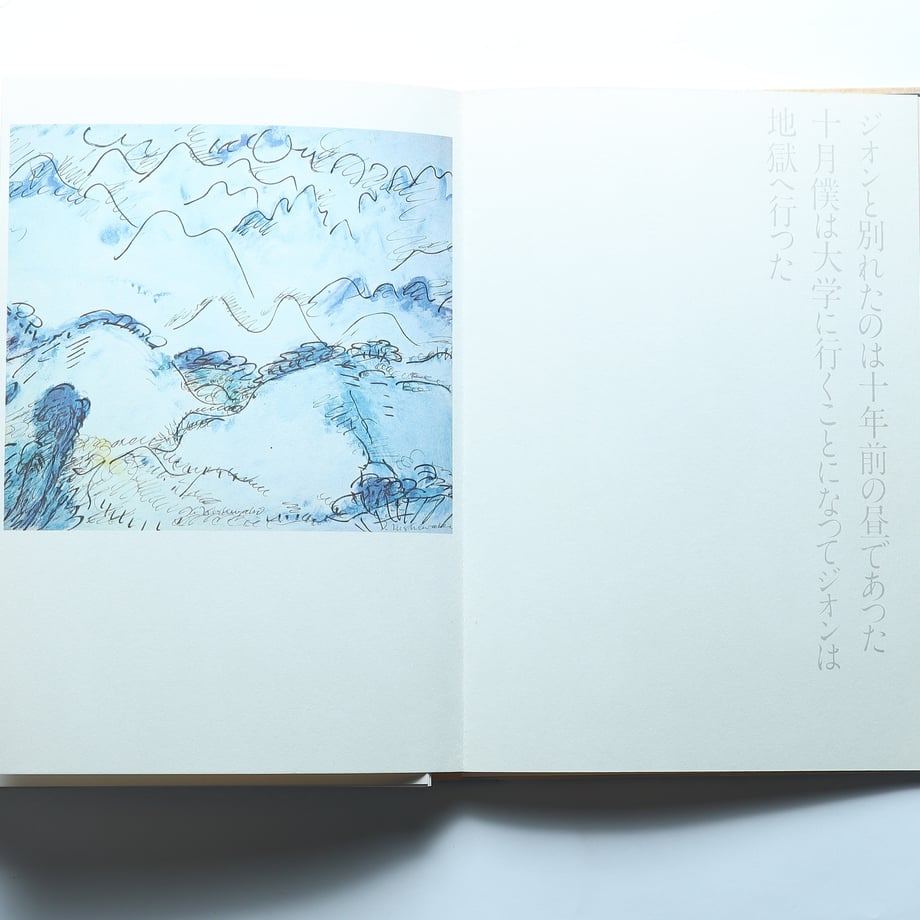 ジオンと別れたのは十年前の昼であつた
十月僕は大学に行くことになつてジオンは
地獄へ行つた